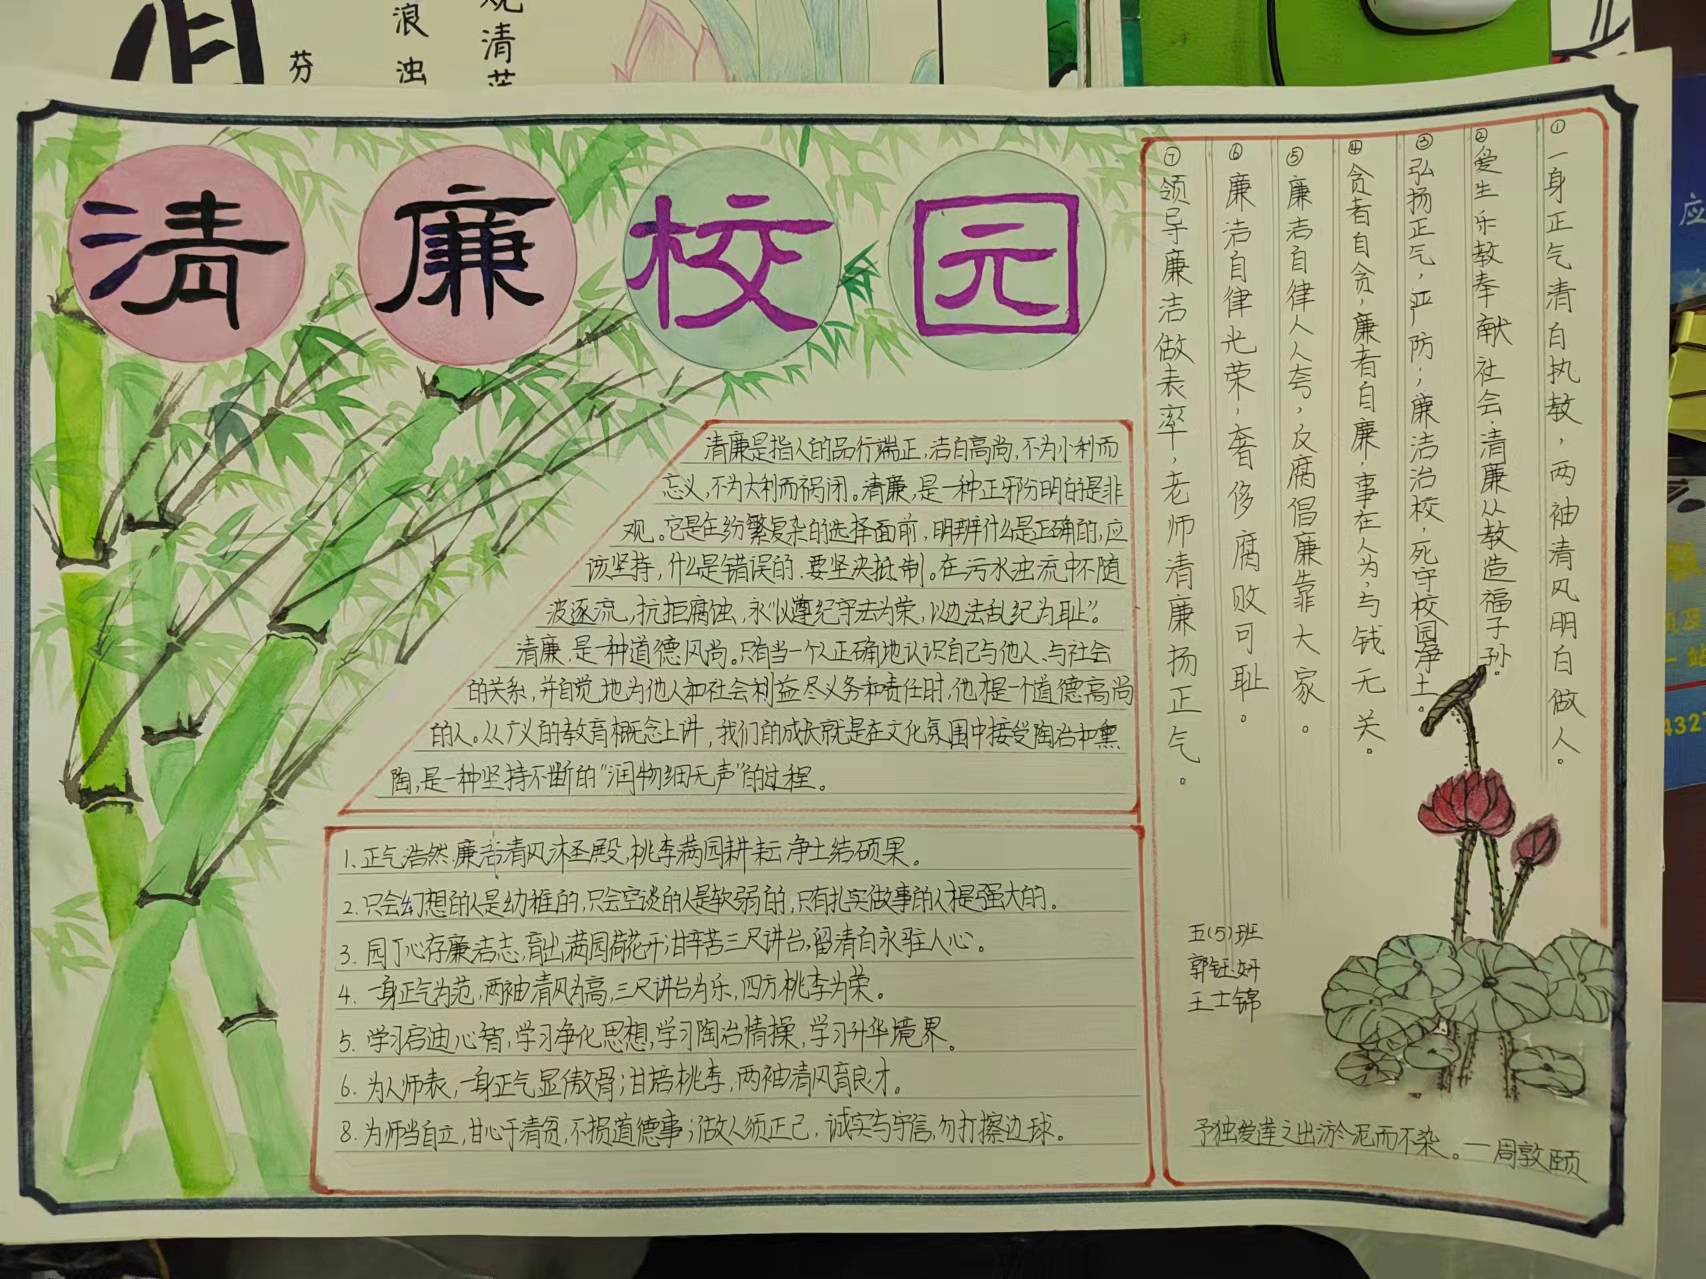 浪
浊
观
清
莲
芬
清廉校园
①一身正气清白执教，两袖清风明白做人。
②爱生乐教奉献社会，清廉从教造福子孙。
③弘扬正气，严防，廉洁治校，死守校园净土。
④贪者自贪，廉者自廉，事在人为，与钱无关。
⑤廉洁自律人人夸，反腐倡廉靠大家。
⑥廉洁自律光荣，奢侈腐败可耻。
⑦领导廉洁做表率，老师清廉扬正气。
清廉是指人的品行端正，洁白高尚，不为小利而
忘义，不为大利而祸闭。清廉，是一种正邪分明的是非
观。它是在纷繁复杂的选择面前，明辨什么是正确的，应
该坚持，什么是错误的，要坚决抵制。在污水浊流中不随
波逐流，抗拒腐蚀，永“以遵纪守法为荣，以边法乱纪为耻”。
清廉，是一种道德风尚。只有当一个人正确地认识自己与他人、与社会
的关系，并自觉地为他人和社会利益尽义务和责任时，他才是一个道德高尚
的人。从广义的教育概念上讲，我们的成长就是在文化氛围中接受陶冶和熏
陶，是一种坚持不断的“润物细无声”的过程。
1.正气浩然廉洁清风沐圣殿，桃李满园耕耘净土结硕果。
2.只会幻想的人是幼稚的，只会空谈的人是软弱的，只有扎实做事的人才是强大的。
3.园丁心存廉洁志，育出满园荷花开；甘辛苦三尺讲台，留清白永驻人心。
4.一身正气为范，两袖清风为高，三尺讲台为乐，四方桃李为荣。
5.学习启迪心智，学习净化思想，学习陶冶情操，学习升华境界。
6.为人师表，一身正气显傲骨；甘培桃李，两袖清风育良才。
8.为师当自立，甘心于清贫，不损道德事；做人须正己，诚实与守信，勿打擦边球。
五(5)班
郭钰妍
王士锦
予独爱莲之出淤泥而不染。—周敦颐
应
及
一站
432